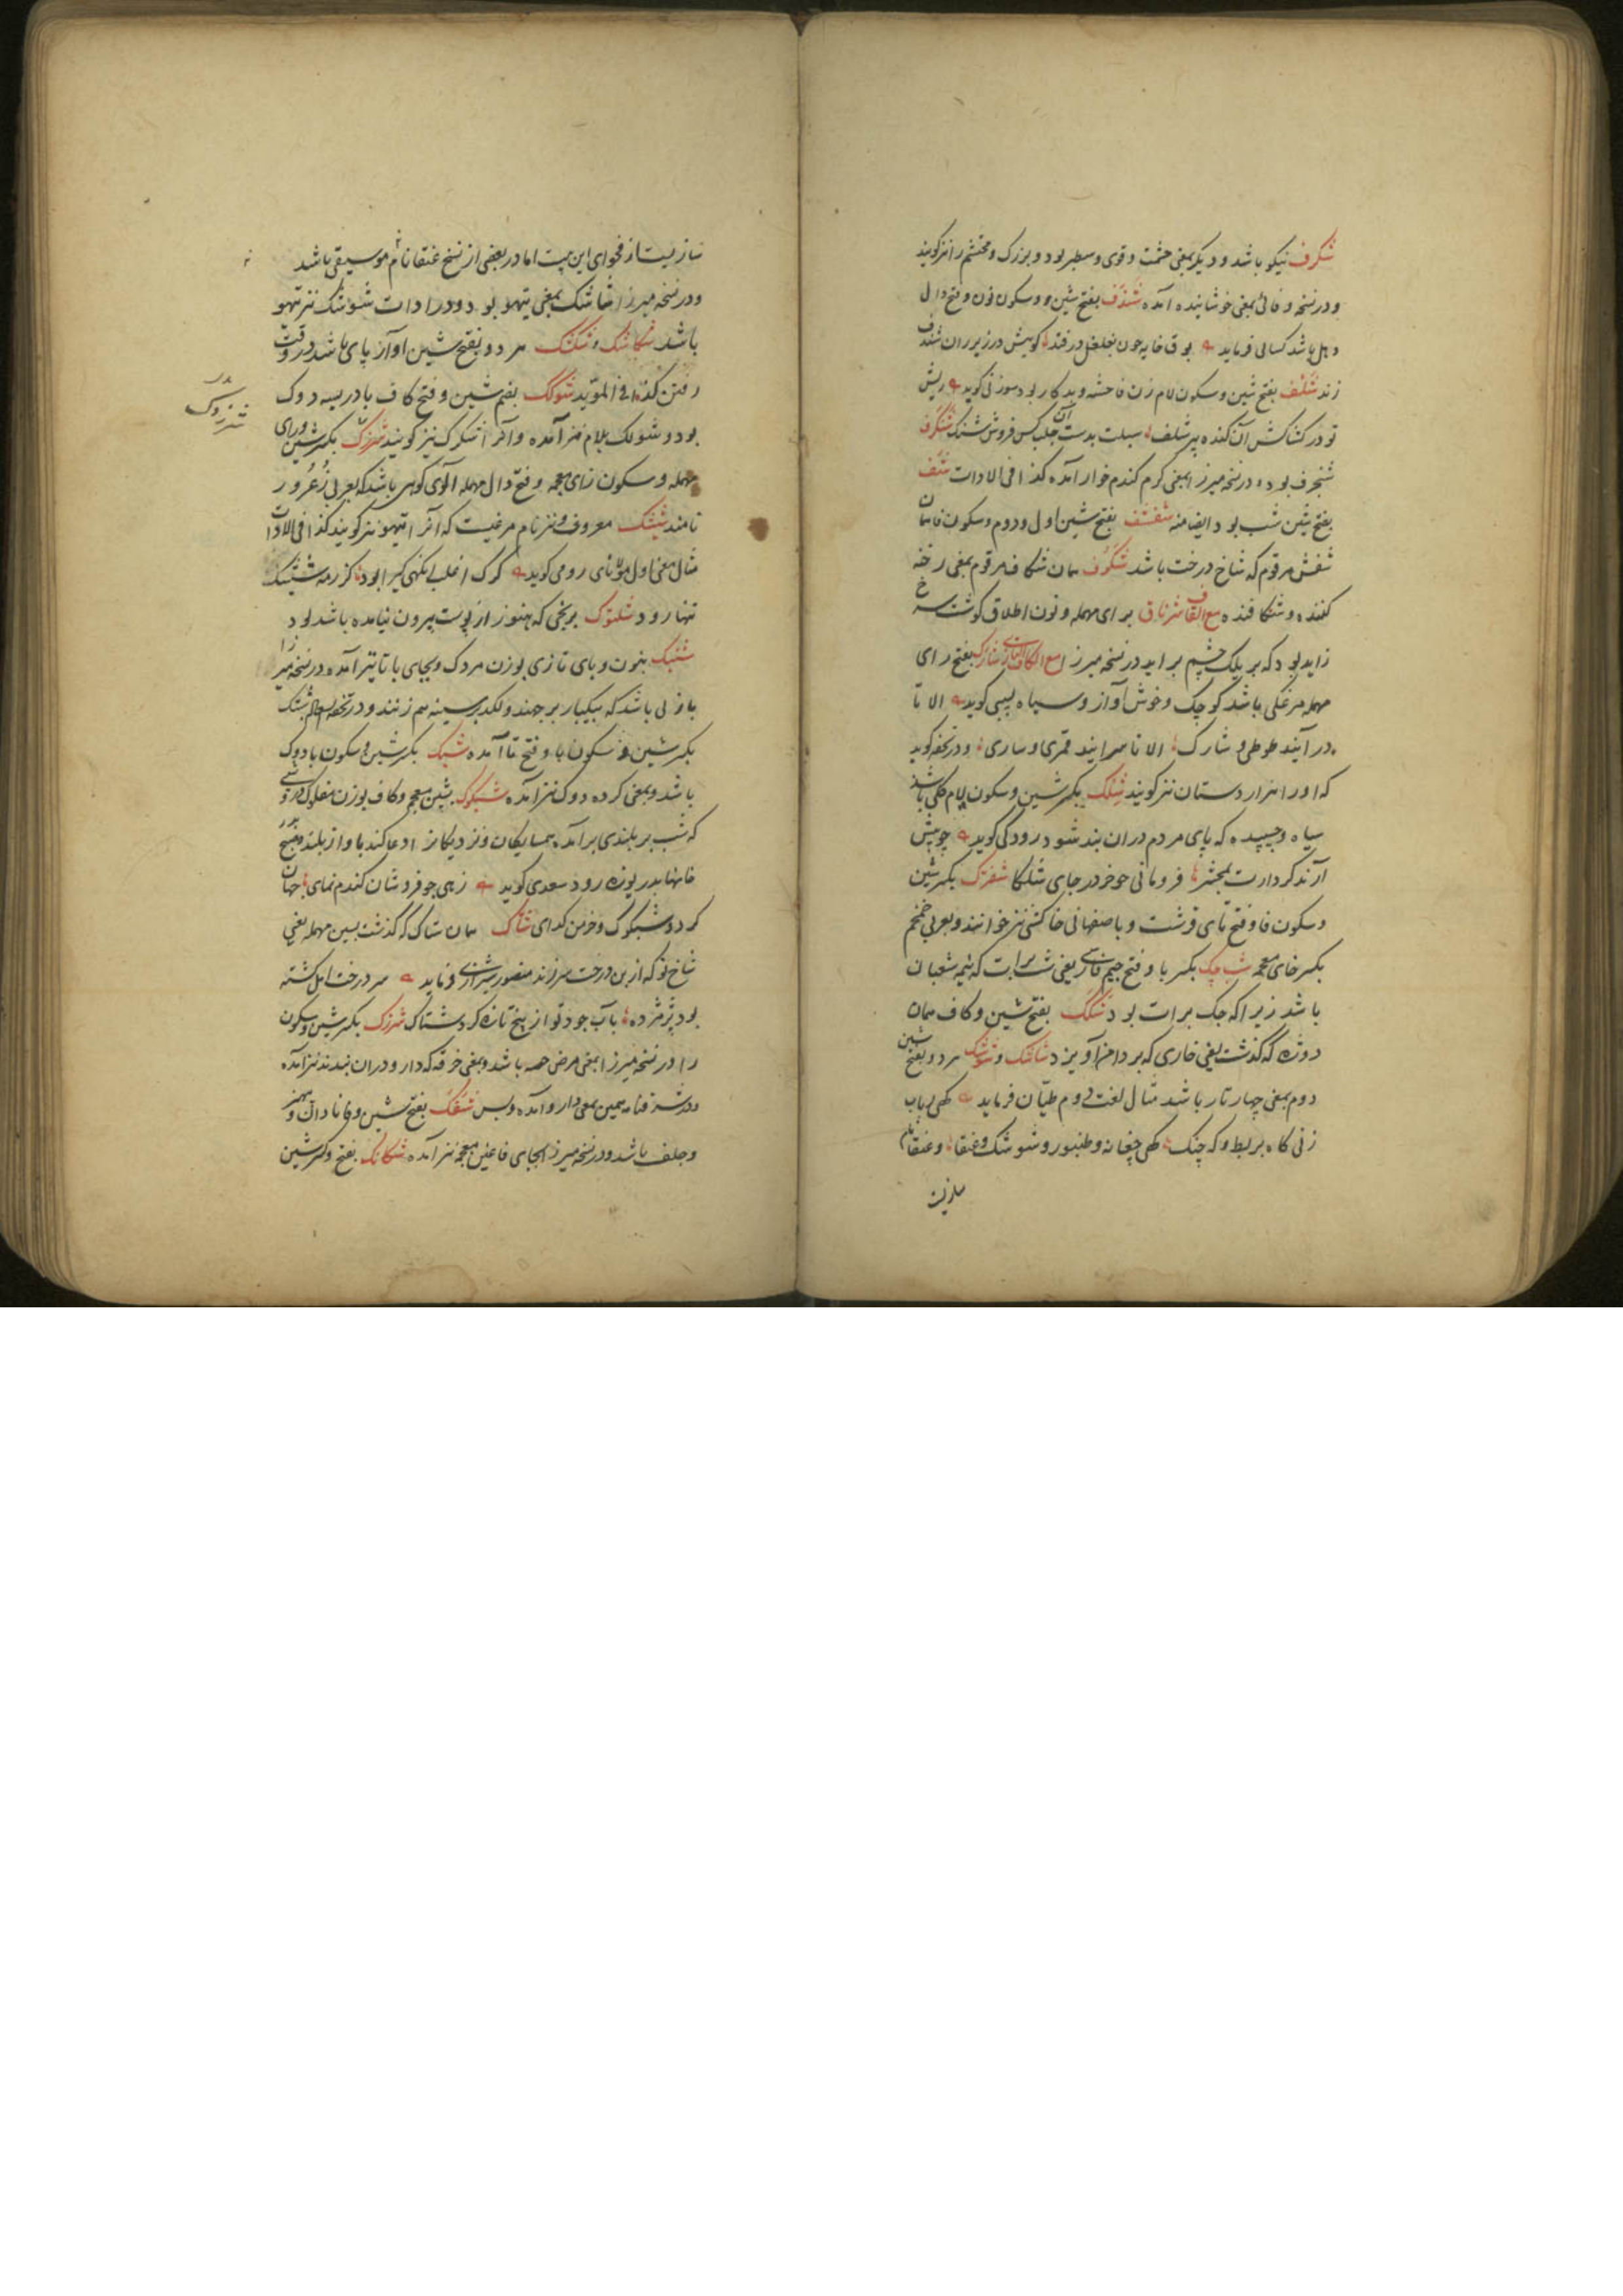 شکرف نیکو باشد و دیگر بمعنی حشمت و قوی و سطبر بود و بزرک و محتشم را نیز کویند
و در نسخه وفائی بمعنی خوشاینده آمده شندف بفتح شین و سکون نون و فتح دال
دهل باشد کسائی فرماید بوق خایه چون بغلغل در فتد کوییش در زیر ران شندف
زند شلف بفتح شین و سکون لام زن فاحشه و بدکار بود سوزنی کوید ریش
تو در کشاکش آن کنده پیر شلف سبلت بدست آن جلب کس فروش شنک شنکرف
شنجرف بود و در نسخه میرزا بمعنی کرم کندم خوار آمده کذا فی الادات شف
بفتح شین شب بود ایضا منه شفشف بفتح شین اول و دوم و سکون فا همان
شفش مرقوم که شاخ درخت باشد شکوف همان شکاف مرقوم بمعنی رخنه
کننده و شکافنده مع القاف شرناق برای مهمله و نون اطلاق کوشت سرخ
زاید بود که بر پلک چشم براید در نسخه میرزا مع الکاف التازی شارک بفتح رای
مهمله مرغکی باشد کوچک و خوش آواز و سیاه لبیبی کوید الا تا
درآیند طوطی و شارک الا تا سرایند قمری و ساری و در تحفه کوید
که او را هزاردستان نیز کویند شلک بکسر شین و سکون لام کلی باشد
سیاه و چسپیده که پای مردم دران بند شود رودکی کوید چو پیش
آرند کردارت بمحشر فرومانی چو خر در جای شلکا شفترک بکسر شین
و سکون فا و فتح تای قرشت و باصفهانی خاکشی نیز خوانند و بعربی خمخم
بکسر خای معجمه شب چک بکسر با و فتح جیم فارسی یعنی شب برات که نیمه شعبان
باشد زیرا که چک برات بود شکک بفتح شین و کاف همان
دوژه که کذشت یعنی خاری که بر دامن آویزد شاشک و شوشک هر دو بفتح شین
دوم بمعنی چهارتار باشد مثال لغت دوم طیان فرماید کهی رباب
زنی کاه بربط و که چنک کهی چغانه و طنبور و شوشک و عنقا و عنقا نام
سازیست
سازیست از فحوای این بیت اما در بعضی از نسخ عنقا نام موسیقی باشد
و در نسخه میرزا شاشک بمعنی تیهو بود و در ادات شوشک نیز تیهو
باشد شکاشک و شکشک هر دو بفتح شین اواز پای باشد در وقت
رفتن کذا فی المؤید شوکک بضم شین و فتح کاف بادریسه دوک
بود و شولک بلام نیز آمده و آنرا شکرک نیز کویند شرزدک بکسر شین و رای
مهمله و سکون زای معجمه و فتح دال مهمله آلوی کوهی باشد که بعربی زعرور
نامند شیشک معروف و نیز نام مرغیست که آنرا تیهو نیز کویند کذا فی الادات
مثال معنی اول مولانای رومی کوید کرک اغلب آنکهی کیرا بود کز رمه شیشک
تنها رود شلتوک برنجی که هنوز از پوست بیرون نیامده باشد بود
شنبک بنون و بای تازی بوزن مردک و بجای با تا نیز آمده و در نسخه میرزا
بازئی باشد که بیکبار برجهند و لکد بر سینه هم زنند و در تحفه شتک
بکسر شین و سکون با و فتح تا آمده شبک بکسر شین و سکون با دوک
باشد و بمعنی کرده دوک نیز آمده شبکوک بشین معجمه و کاف بوزن مفلوک درویشی
که شب بر بلندی برآمده همسایکان و نزدیکان را دعا کند باواز بلند و صبح بدر
خانها بدریوزه رود سعدی کوید زهی جو فروشان کندم نمای جهان
کرد و شبکوک و خرمن کدای شاک همان ستاک که کذشت بسین مهمله یعنی
شاخ نو که از بن درخت سرزند منصور شیرازی فرماید هر درخت امل کشته
بود پژمرده بآب جود تو از بیخ تازه کرد شتاک شرزک بکسر شین و سکون
را در نسخه میرزا بمعنی مرض حصبه باشد و بمعنی خرقه که دارو دران بندند نیز آمده
و در شرفنامه همین بمعنی دارو آمده و بس شفک بفتح شین و فا نادان و بی هنر
و جلف باشد و در نسخه میرزا بجای فا غین معجمه نیز آمده شکانک بفتح و کسر شین